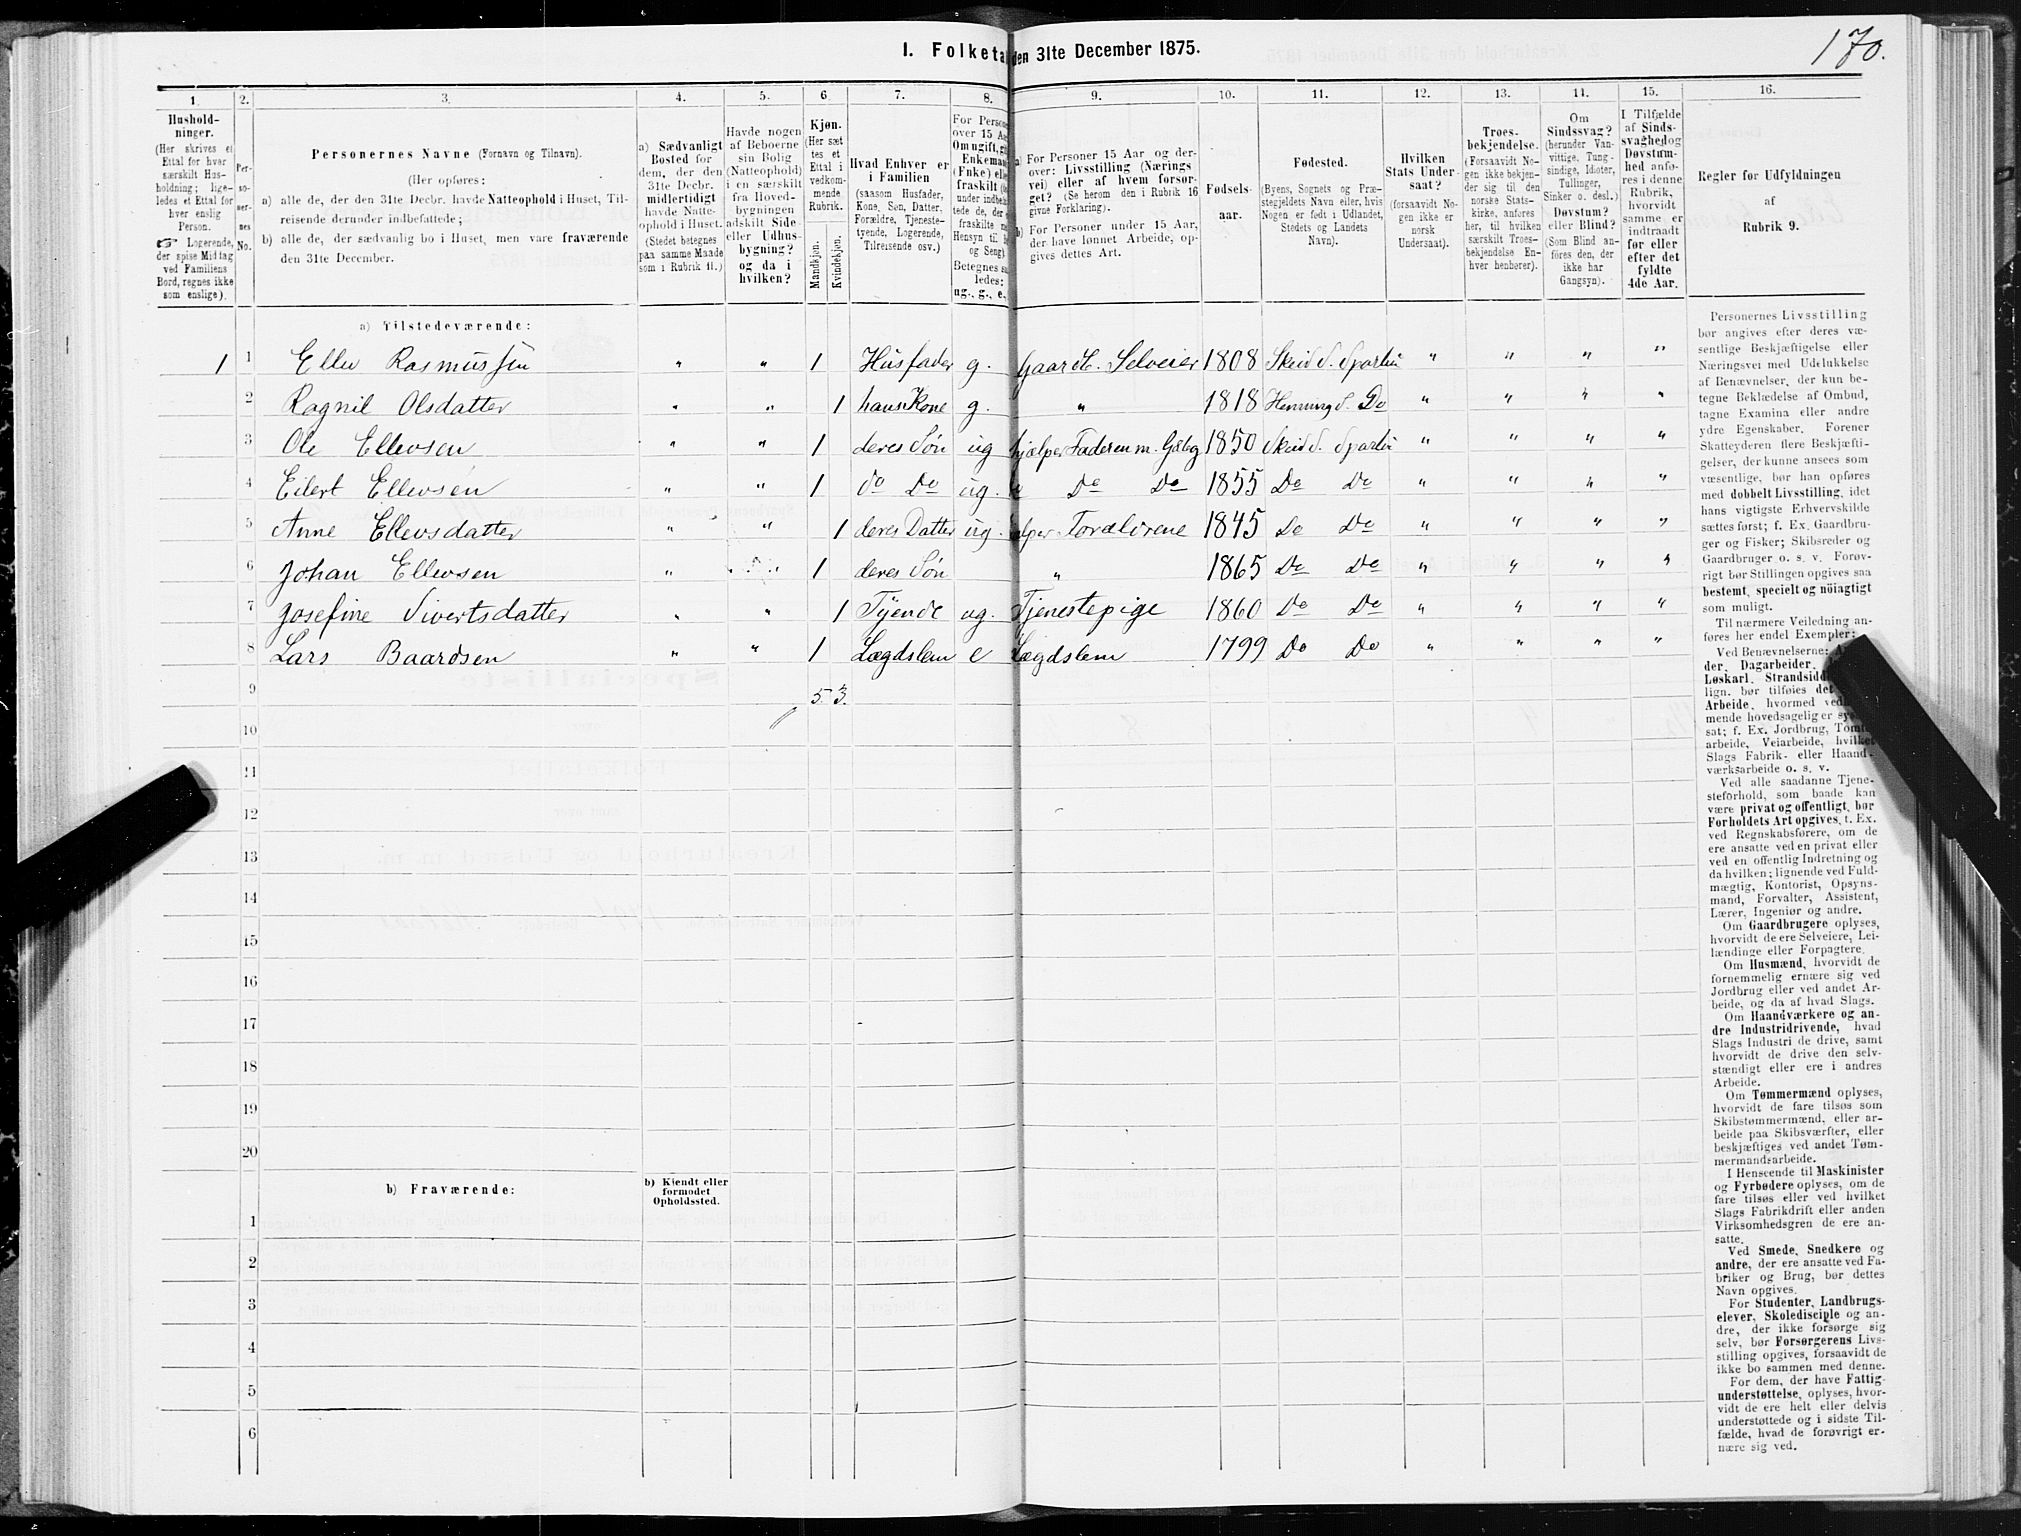 170.
I. Folketa
den 31te December 1875.
1. 2. 3. 4. 5. 6. 7. 8. 9. 10. 11. 12. 13. 14. 15. 16.
Hushold-
ninger.
(Her skrives et
Ettal for hver
særskilt Hus-
holdning; lige-
ledes et Ettal for
hver enslig
Person.
☞ Logerende,
der spise Middag
ved Familiens
Bord, regnes ikke
som enslige).
Per-
so-
ner-
nes
No.
Personernes Navne (Fornavn og Tilnavn).
(Her opføres:
a) alle de, der den 31te Decbr. havde Natteophold i Huset, Til-
reisende derunder indbefattede;
b) alle de, der sædvanlig bo i Huset, men vare fraværende
den 31te December.
a) Sædvanligt
Bosted for
dem, der den
31te Decbr.
midlertidigt
havde Natte-
ophold i Huset.
(Stedet betegnes
paa samme Maade
som i Rubrik 11.)
Havde nogen
af Beboerne
sin Bolig
(Natteophold)
i en særskilt
fra Hoved-
bygningen
adskilt Side-
eller Udhus-
bygning?
og da i
hvilken?
Kjøn.
(Her sæt
tes et
Ettal i
vedkom-
mende
Rubrik.
Mandkjøn.
Kvindekjøn.
Hvad Enhver er
i Familien
(saasom Husfader,
Kone, Søn, Datter,
Forældre, Tjeneste-
tyende, Logerende,
Tilreisende osv.)
For Persone
over 15 Aar
Om ugift, gif
Enkemand
(Enke) elle
fraskilt (
under indbe
tede de, der
fraskilte m
Hensyn til B
og Seng).
Betegnes s
ledes:
ug., g., e.,
a) For Personer 15 Aar og der-
over: Livsstilling (Nærings
vei) eller af hvem forsør-
get? (Se herom den i Rubrik 16
givne Forklaring).
b) For Personer under 15 Aar,
der have lønnet Arbeide, op-
gives dettes Art.
Fødsels-
aar.
Fødested.
(Byens, Sognets og Præ-
stegjeldets Navn eller, hvis
Nogen er født i Udlandet,
Stedets og Landets
Navn).
Hvilken
Stats Under-
saat?
(forsaavidt No-
gen ikke er
norsk
Undersaat).
Troes-
bekjendelse.
(Forsaavidt No-
gen ikke bekjen-
der sig til den
norske Stats-
kirke, anføres
her, til hvilken
særskilt Troes-
bekjendelse En-
hver henhører).
Om
Sindssvag?
(herunder Van-
vittige, Tung-
sindige, Idioter,
Tullinger,
Sinker o. desl.)
Døvstum?
eller Blind?
(Som Blind an-
føres den, der
ikke har
Gangsyn).
I Tilfælde
af Sinds-
svaghed og
Døvstum-
hed anfø-
res i denne
Rubrik,
hvorvidt
samme er
indtraadt
før eller
efter det
fyldte
4de Aar.
Regler for Udfyldningen
af
Rubrik 9.
a) Tilstedeværende:
1 1 Ellev Rasmussen " " 1 Husfader g. Gaardb. Selveier 1808 Skeid S. Sparbu " " " "
2 Ragnil Olsdatter " " 1 hans Kone g. " 1818 Henning S. Do " " " "
3 Ole Ellevsen " " 1 deres Søn ug hjælper Faderen m. Gbrg 1850 Skeid S. Sparbu " " " "
4 Eilert Ellevsen " " 1 do Do ug. Do Do 1855 Do Do " " " "
5 Anne Ellevsdatter " " 1 deres Datter ug. Forældrene 1845 Do Do " " " "
6 Johan Ellevsen " " 1 deres Søn " 1865 Do Do " " " "
7 Josefine Sivertsdatter " " 1 Tyende ug. Tjenestepige 1860 Do Do " " " "
8 Lars Baardsen " " 1 Lægdslem e Lægdslem 1799 Do Do " " " "
9 5 3.
10
11
12
13
14
15
16
17
18
19
20
b) Fraværende:
b) Kjendt eller
formodet
Opholdssted.
1
2
3
4
5
6
Personernes Livsstilling
bør angives efter deres væ-
sentlige Beskjæftigelse eller
Næringsvei med Udelukkelse
af Benævnelser, der kun be-
tegne Beklædelse af Ombud,
tagne Examina eller andre
ydre Egenskaber. Forener
Skatteyderen flere Beskjæfti-
gelser, der kunne ansees som
væsentlige, bør han opføres
med dobbelt Livsstilling, idet
hans vigtigste Erhvervskilde
sættes først; f. Ex. Gaardbru-
ger og Fisker; Skibsreder og
Gaardbruger o. s. v. Forøv-
rigt bør Stillingen opgives saa
bestemt, specielt og nøiagtigt
som muligt.
Til nærmere Veiledning an-
føres her endel Exempler:
Ved Benævnelserne:
der, Dagarbeider,
Løskarl, Strandsidd
lign. bør tilføies det
Arbeide, hvormed ved
mende hovedsagelig er sys
sat; f. Ex. Jordbrug, Tømt
arbeide, Veiarbeide, hvilket
Slags Fabrik- eller Haand-
værksarbeide o. s. v.
Ved alle saadanne Tjene-
steforhold, som baade kan
være privat og offentligt, bør
Forholdets Art opgives, f. Ex.
ved Regnskabsførere, om de
ere ansatte ved en privat eller
ved en offentlig Indretning og
da hvilken; lignende ved Fuld-
mægtig, Kontorist, Opsyns-
mand, Forvalter, Assistent,
Lærer, Ingeniør og andre.
Om Gaardbrugere oplyses,
hvorvidt de ere Selveiere, Lei-
lændinge eller Forpagtere.
Om Husmænd, hvorvidt de
fornemmelig ernære sig ved
Jordbrug eller ved andet Ar-
beide, og da af hvad Slags.
Om Haandværkere og an-
dre Industridrivende, hvad
Slags Industri de drive, samt
hvorvidt de drive den selv-
stændigt eller ere i andres
Arbeide.
Om Tømmermænd oplyses,
hvorvidt de fare tilsøs som
Skibstømmermænd, eller ar-
beide paa Skibsværfter, eller
beskjæftiges ved andet Tøm-
mermandsarbeide.
I Henseende til Maskinister
og Fyrbødere oplyses, om de
fare tilsøs eller ved hvilket
Slags Fabrikdrift eller anden
Virksomhedsgren de ere an-
satte.
Ved Smede, Snedkere og
andre, der ere ansatte ved Fa-
briker og Brug, bør dettes
Navn opgives.
For Studenter, Landbrugs-
elever, Skoledisciple og an-
dre, der ikke forsørge sig
selv, bør Forsørgerens Livs-
stilling opgives, forsaavidt de
ikke bo sammen med denne.
For dem, der have Fattig-
understøttelse, oplyses, hvor-
vidt de ere helt eller delvis
understøttede og i sidste Til-
fælde, hvad de forøvrigt er-
nære sig ved.